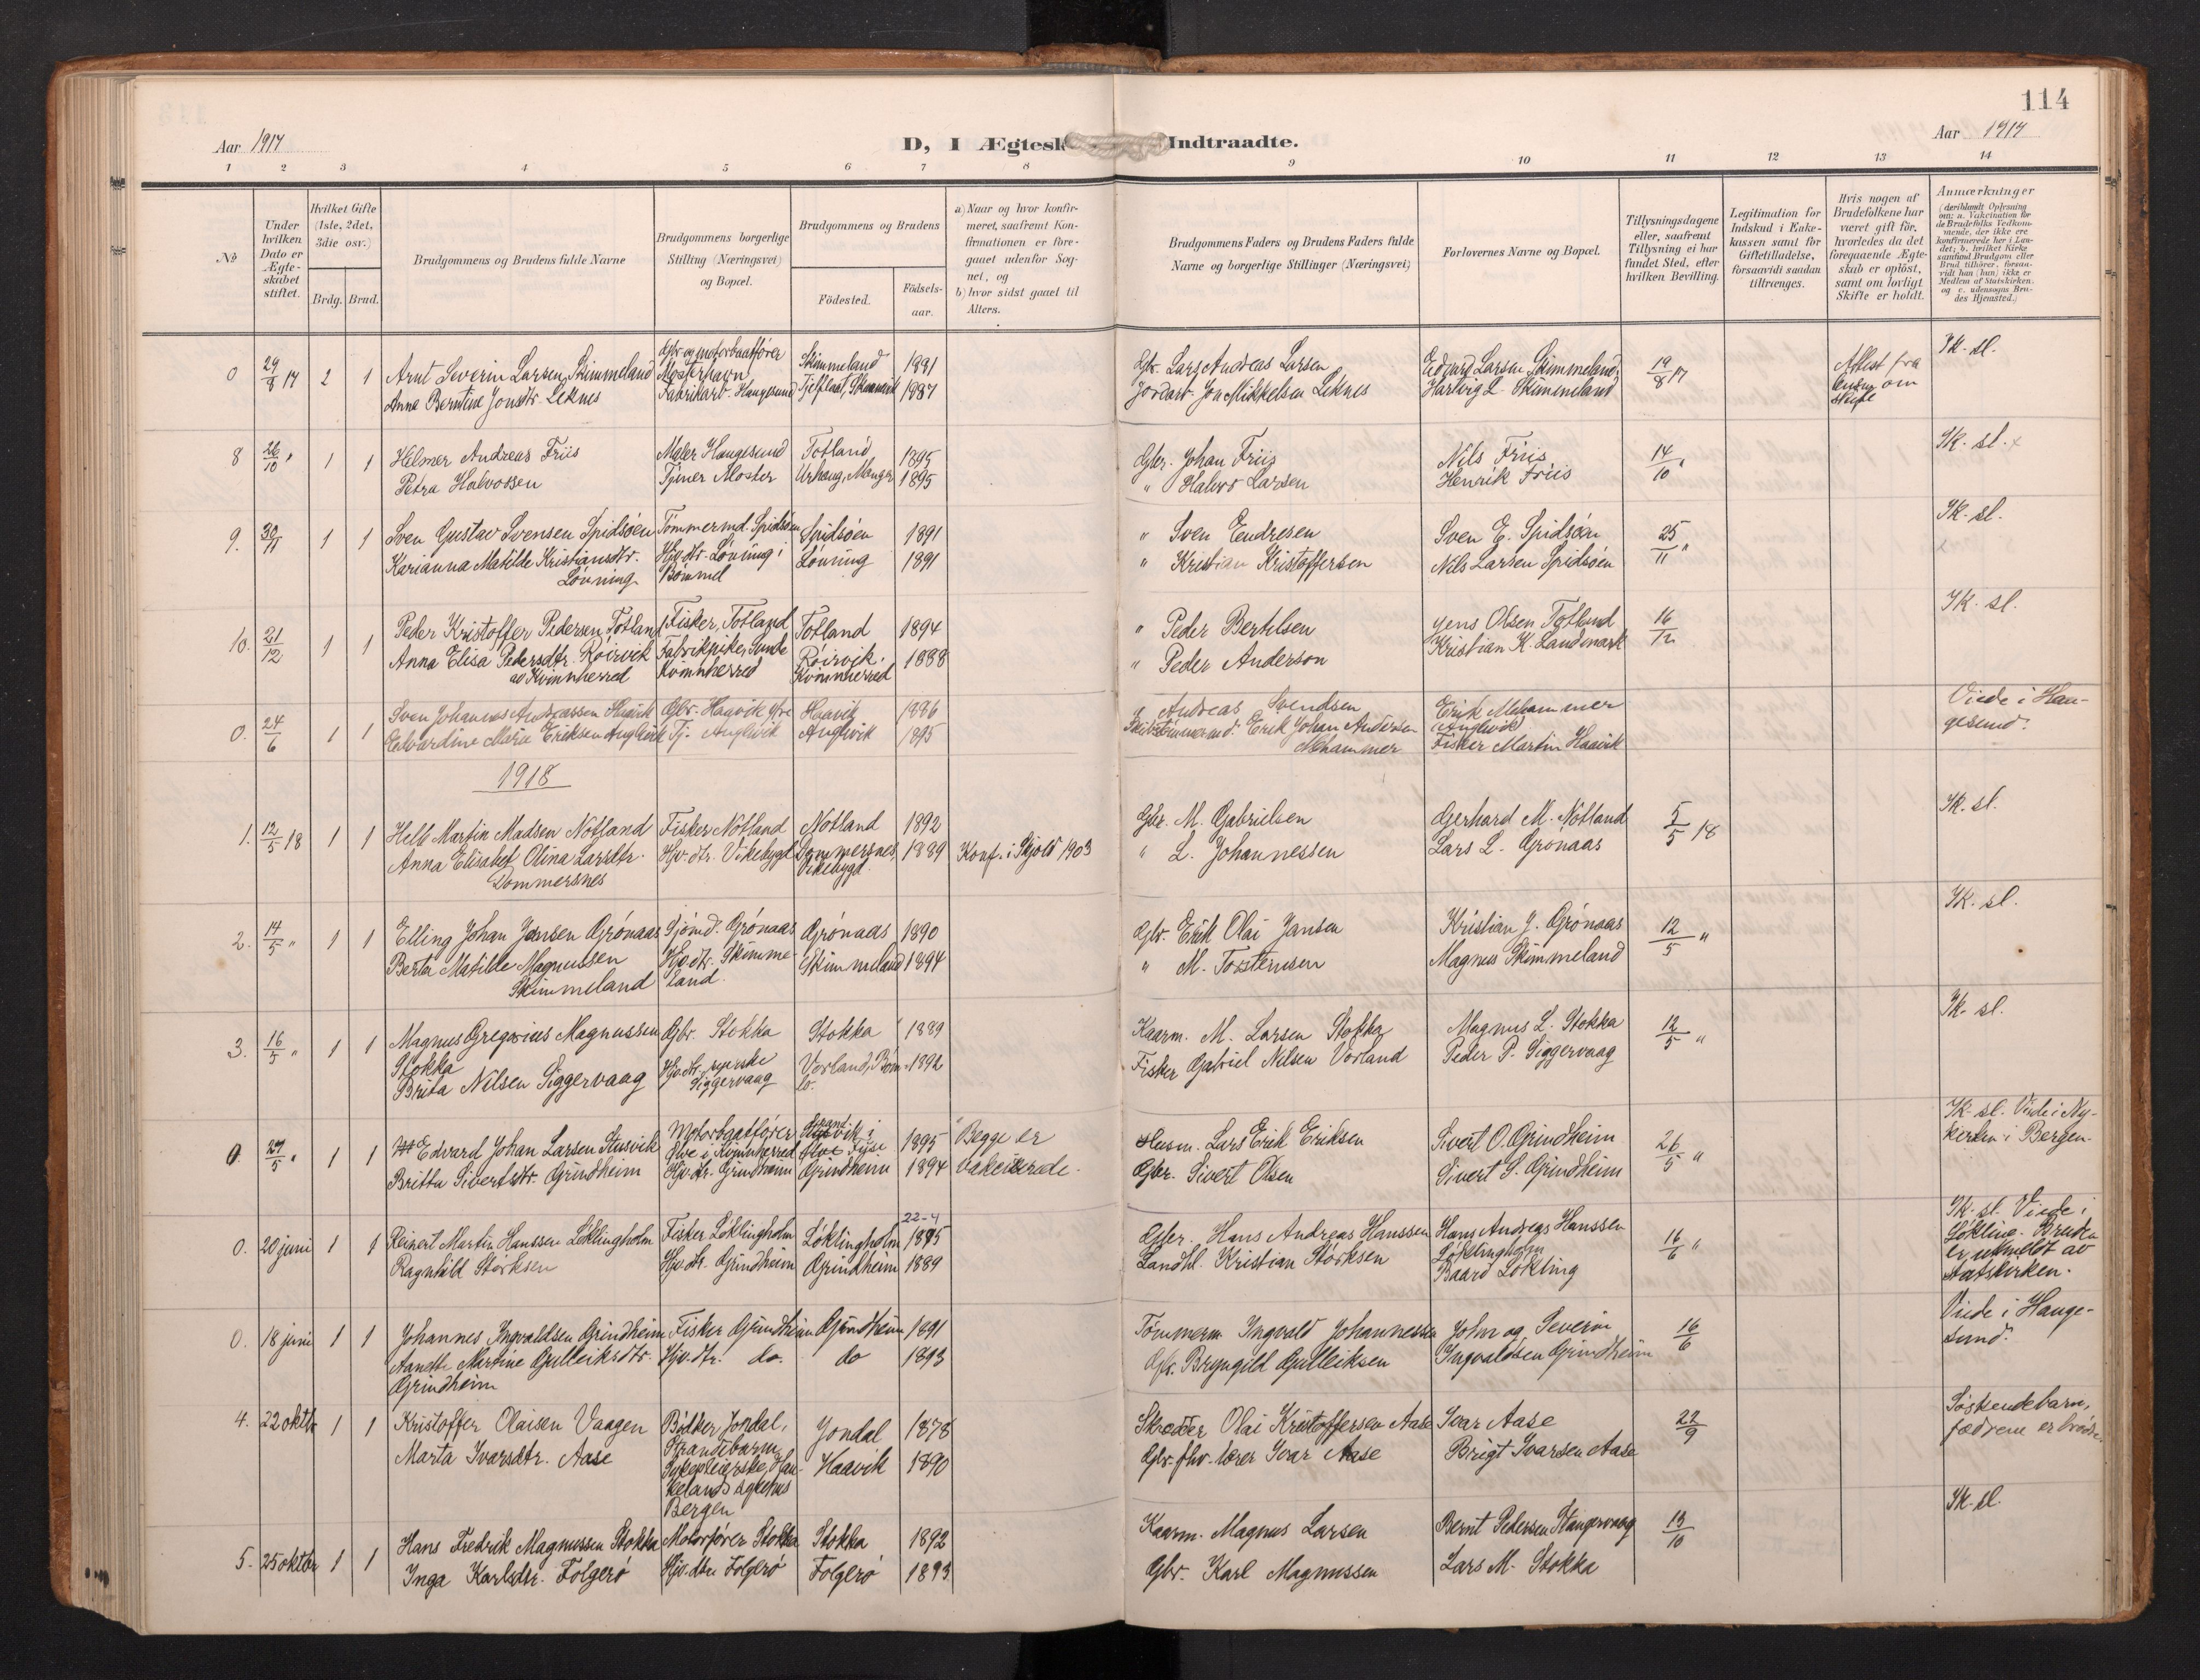 114
Aar 1917
D, I Ægtesk Indtraadte.
Aar 1917
1 2 3 4 5 6 7 8 9 10 11 12 13 14
No
Under hvilken Dato er Ægteskabet stiftet.
Hvilket Gifte (1ste, 2det, 3die osv.)
Brdg. Brud.
Brudgommens og Brudens fulde Navne
Brudgommens borgerlige Stilling (Næringsvei) og Bopæl.
Brudgommens og Brudens
Födested.
Födselsaar.
a) Naar og hvor konfirmeret, saafremt Konfirmationen er foregaaet udenfor Sognet, og
b) hvor sidst gaaet til Alters.
Brudgommens Faders og Brudens Faders fulde Navne og borgerlige Stillinger (Næringsvei)
Forlovernes Navne og Bopæl.
Tillysningsdagene eller, saafremt Tillysning ei har fundet Sted, efter hvilken Bevilling.
Legitimation for Indskud i Enkekassen samt for Giftetilladelse, forsaavidt saadan tiltrænges.
Hvis nogen af Brudefolkene har været gift för, hvorledes da det foregaaende Ægteskab er oplöst, samt om lovligt Skifte er holdt.
Anmærkninger
(deriblandt Oplysning om: a. Vakcination for de Brudefolks Vedkommende, der ikke ere konfirmerede her i Landet; b. hvilket Kirkesamfund Brudgom eller Brud tilhörer, forsaavidt han (hun) ikke er Medlem af Statskirken, og c. udensogns Brudes Hjemsted.)
0 29/8 17 2 1 Arnt Severin Larsen Skimmeland Gbr og motorbaatfører Mosterhavn Skimmeland 1891 Gbr. Lars Andreas Larsen Edvard Larsen Skimmeland 19/8 17 Attest fra om skifte Ik. sl.
Anna Berntine Jonsdtr. Leknes Fabrikarb. Haugesund Tjeltlast, Skaanevik 1887 Jordarb. Jon Mikkelsen Leknes Hartvig L. Skimmeland
8 26/10 " 1 1 Helmer Andreas Friis Maler Haugesund Totland 1895 Gbr. Johan Friis Nils Friis 14/10 " Ik. sl. x
Petra Halvorsen Tjener Moster Urhaug, Manger 1895 " Halvor Larsen Henrik Friis
9. 30/11 1 1 Sven Gustav Svensen Spidsøen Tømmermd. Spidsøen Spidsøen 1891 " Sven Endresen Sven E. Spidsøen 25/11 " Ik. sl.
Karianna Matilde Kristiansdtr. Løvning Hjv. dtr. Løvning i Bømmel Løvning 1891 " Kristian Kristoffersen Nils Larsen Spidsøen
10. 21/12 1 1 Peder Kristoffer Pedersen Totland Fisker, Totland Totland 1894 " Peder Bertelsen Jens Olsen Totland 16/12 Ik. sl.
Anna Elisa Pedersdtr. Røirvik av Kvinnherred Fabrikpike, Sunde Kvinnherred Røirvik, Kvinnherred 1888 " Peder Anderson Kristian K. Landmark
0. 24/6 1 1 Sven Johannes Andreassen Haavik Gbr. Haavik Haavik 1886 " Andreas Svendsen Erik Mehammer (Anglevik) Viede i Haugesund.
Edvardine Maria Eriksen Anglevik Tj. Anglevik Anglevik 1895 Skibstømmermd. Erik Johan Andersen Mehammer Fisker Martin Haavik
1918
1. 12/5 18 1 1 Helb Martin Madsen Notland Fisker Notland Notland 1892 Gbr. M. Gabrielsen Gerhard M. Notland 5/5 18 Ik. sl.
Anna Elisabet Olina Larsdtr. Dommersnes Hjv. dtr. Vikebygd Dommersnes Vikebygd 1889 Konf. i Skjold 1903 " L. Johannessen Lars L. Grønaas
2. 14/5 " 1 1 Elling Johan Jansen Grønaas Sjømd. Grønaas Grønaas 1890 Gbr. Erik Olai Jansen Kristian J. Grønaas 12/5 " Ik. sl.
Berta Matilde Magnussen Skimmeland Hjv. dtr. Skimmeland Skimmeland 1894 " M. Torstensen Magnus Skimmeland
3. 16/5 " 1 1 Magnus Gregorius Magnussen Stokka Gbr. Stokka Stokka 1889 Kaarm. M. Larsen Stokka Magnus L. Stokka 12/5 " Ik. sl.
Brita Nilsen Siggervaag Hjv. dtr. Siggervaag Vorland, Bømlo. 1892 Fisker Gabriel Nilsen Vorland Peder P. Siggervaag
0. 27/5 " 1 1 Edvard Johan Larsen Stusvik Motorbaatfører Ølve i Kvinnherred 1895 Begge er Husm. Lars Erik Eriksen Sivert O. Grindheim 26/5 " Ik. sl. Viede i Nykirken i Bergen.
Britta Sivertsdtr. Grindheim Hjv. dtr. Grindheim Grindheim 1894 vakcinerede. Gbr. Sivert Olsen Sivert S. Grindheim
0. 20 juni 1 1 Reinert Martin Hanssen Løklingholm Fisker Løklingholm Løklingholm 22-4 1885 Gbr. Hans Andreas Hanssen Hans Andreas Hanssen Løklingholm 16/6 " Ik. sl. Viede i Løkling. Bruden er utmeldt av statskirken.
Ragnhild Størksen Hjv. dtr. Grindheim Grindheim 1889 Landhl. Kristian Størksen Baard Løkling
0. 18 juni 1 1 Johannes Ingvaldsen Grindheim Fisker Grindheim Grindheim 1891 Tømmerm. Ingvald Johannessen John og Severin 16/6 Viede i Haugesund.
Anette Martine Gulleiksdtr. Grindheim Hjv. dtr. do. do 1893 Gbr. Bryngild Gulleiksen Ingvaldsen Grindheim
4. 22 oktbr 1 1 Kristoffer Olaisen Vaagen Bødker, Jondal, Strandebarm Jondal 1878 Skrædder Olai Kristoffersen Aase Ivar Aase 22/9 Søskendebarn, fædrene er brødre.
Marta Ivarsdtr. Aase Sykepleierske, Haukelands sykehus Bergen Haavik 1890 Gbr. fhv. lærer Ivar Aase Brigt Ivarsen Aase
5. 25 oktbr 1 1 Hans Fredrik Magnussen Stokka Motorfører Stokka Stokka 1892 Kaarm. Magnus Larsen Bernt Pedersen Stangervaag 13/10 Ik. sl.
Inga Karlsdtr. Folgerø Hjv. dtr. Folgerø Folgerø 1893 Gbr. Karl Magnussen Lars M. Stokka